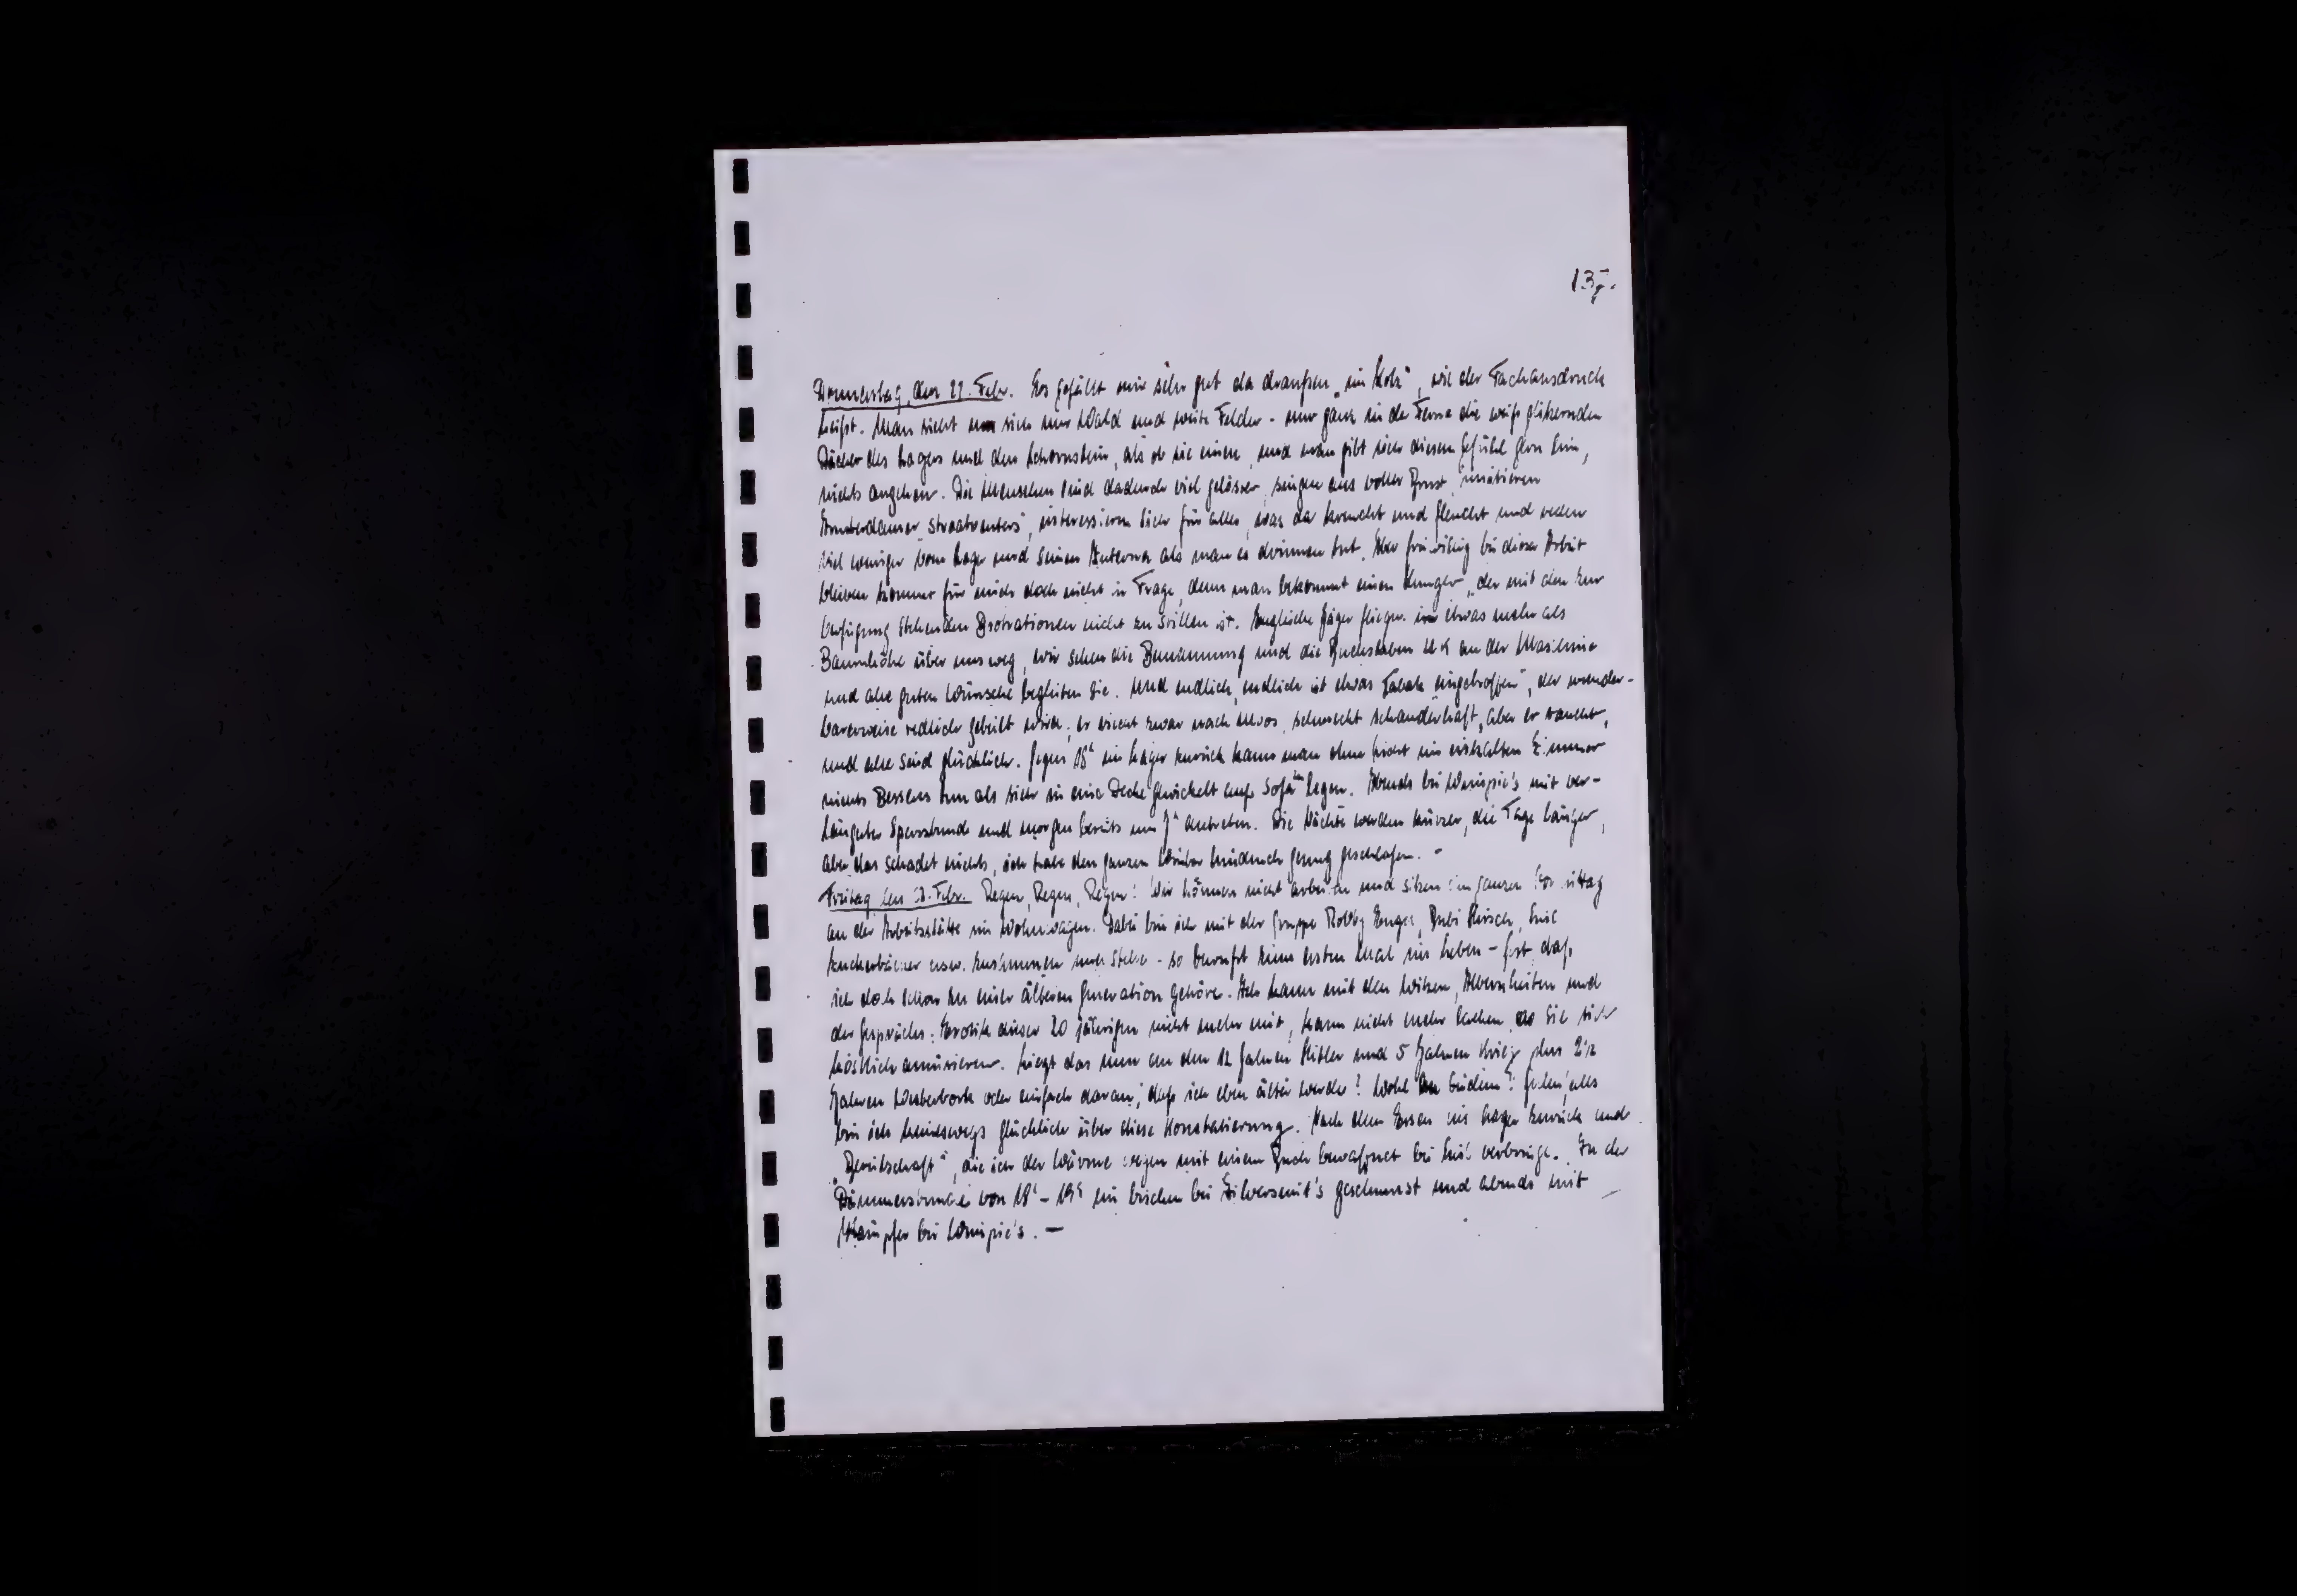 137.
Donnerstag, den 22. Febr. Es gefällt mir sehr gut da draußen „im Holz", wie der Fachausdruck
heißt. Man sieht um sich nur Wald und weite Felder - nur ganz in der Ferne die weiß glitzernden
Dächer des Lagers und den Schornstein, als ob sie einen, und man gibt sich diesem Gefühl gern hin,
nichts angehen. Die Menschen sind dadurch viel gelöster, singen aus voller Brust, imitieren
Amsterdamer „Straatventers", interessieren sich für alles, was da kreucht und fleucht und reden
viel weniger vom Lager und seinen Interna als man es drinnen tut. Aber freiwillig bei dieser Arbeit
bleiben kommt für mich doch nicht in Frage, denn man bekommt einen Hunger, der mit den zur
Verfügung stehenden Brotrationen nicht zu stillen ist. Englische Jäger fliegen in etwas mehr als
Baumhöhe über uns weg, wir sehen die Bemannung und die Buchstaben an der Maschine
und alle guten Wünsche begleiten sie. Und endlich, endlich ist etwas Tabak „eingetroffen", der wunder-
barerweise redlich geteilt wird; er riecht zwar nach schmeckt schauderhaft, aber er raucht,
und alle sind glücklich. Gegen 18h ins Lager zurück kann man ohne Licht im eiskalten Zimmer
nichts Besseres tun als sich in eine Decke gewickelt aufs Sofa legen. Abends bei Wempie's mit ver-
längerter Sperrstunde und morgen bereits um 7h antreten. Die Nächte werden kürzer, die Tage länger,
aber das schadet nichts, ich habe den ganzen Winter hindurch genug geschlafen. -
Freitag den 23. Febr. Regen, Regen, Regen! Wir können nicht arbeiten und sitzen den ganzen Vormittag
an der Arbeitsstätte im Wohnwagen. Dabei bin ich mit der Gruppe Robby Bubi Hirsch, Emil
Zuckerbäcker usw. zusammen und stelle - so bewußt zum ersten Mal im Leben - fest, daß
ich doch schon zu einer älteren Generation gehöre. Ich kann mit den Witzen, Albernheiten und
der Gesprächs-Erotik dieser 20 jährigen nicht mehr mit, kann nicht mehr lachen, wo sie sich
köstlich amüsieren. Liegt das nun an den 12 Jahren Hitler und 5 Jahren Krieg plus 2½
Jahren Westerbork oder einfach daran, daß ich eben älter werde? Wohl an beidem! Jedenfalls
bin ich keineswegs glücklich über diese Konstatierung. Nach dem Essen ins Lager zurück und
„Bereitschaft", die ich der Wärme wegen mit einem Buch bewaffnet bei verbringe. In der
Dämmerstunde von 18h - 19h ein bischen bei Silversmit's geschmust und abends mit
Kämpfer bei Wempie's. —